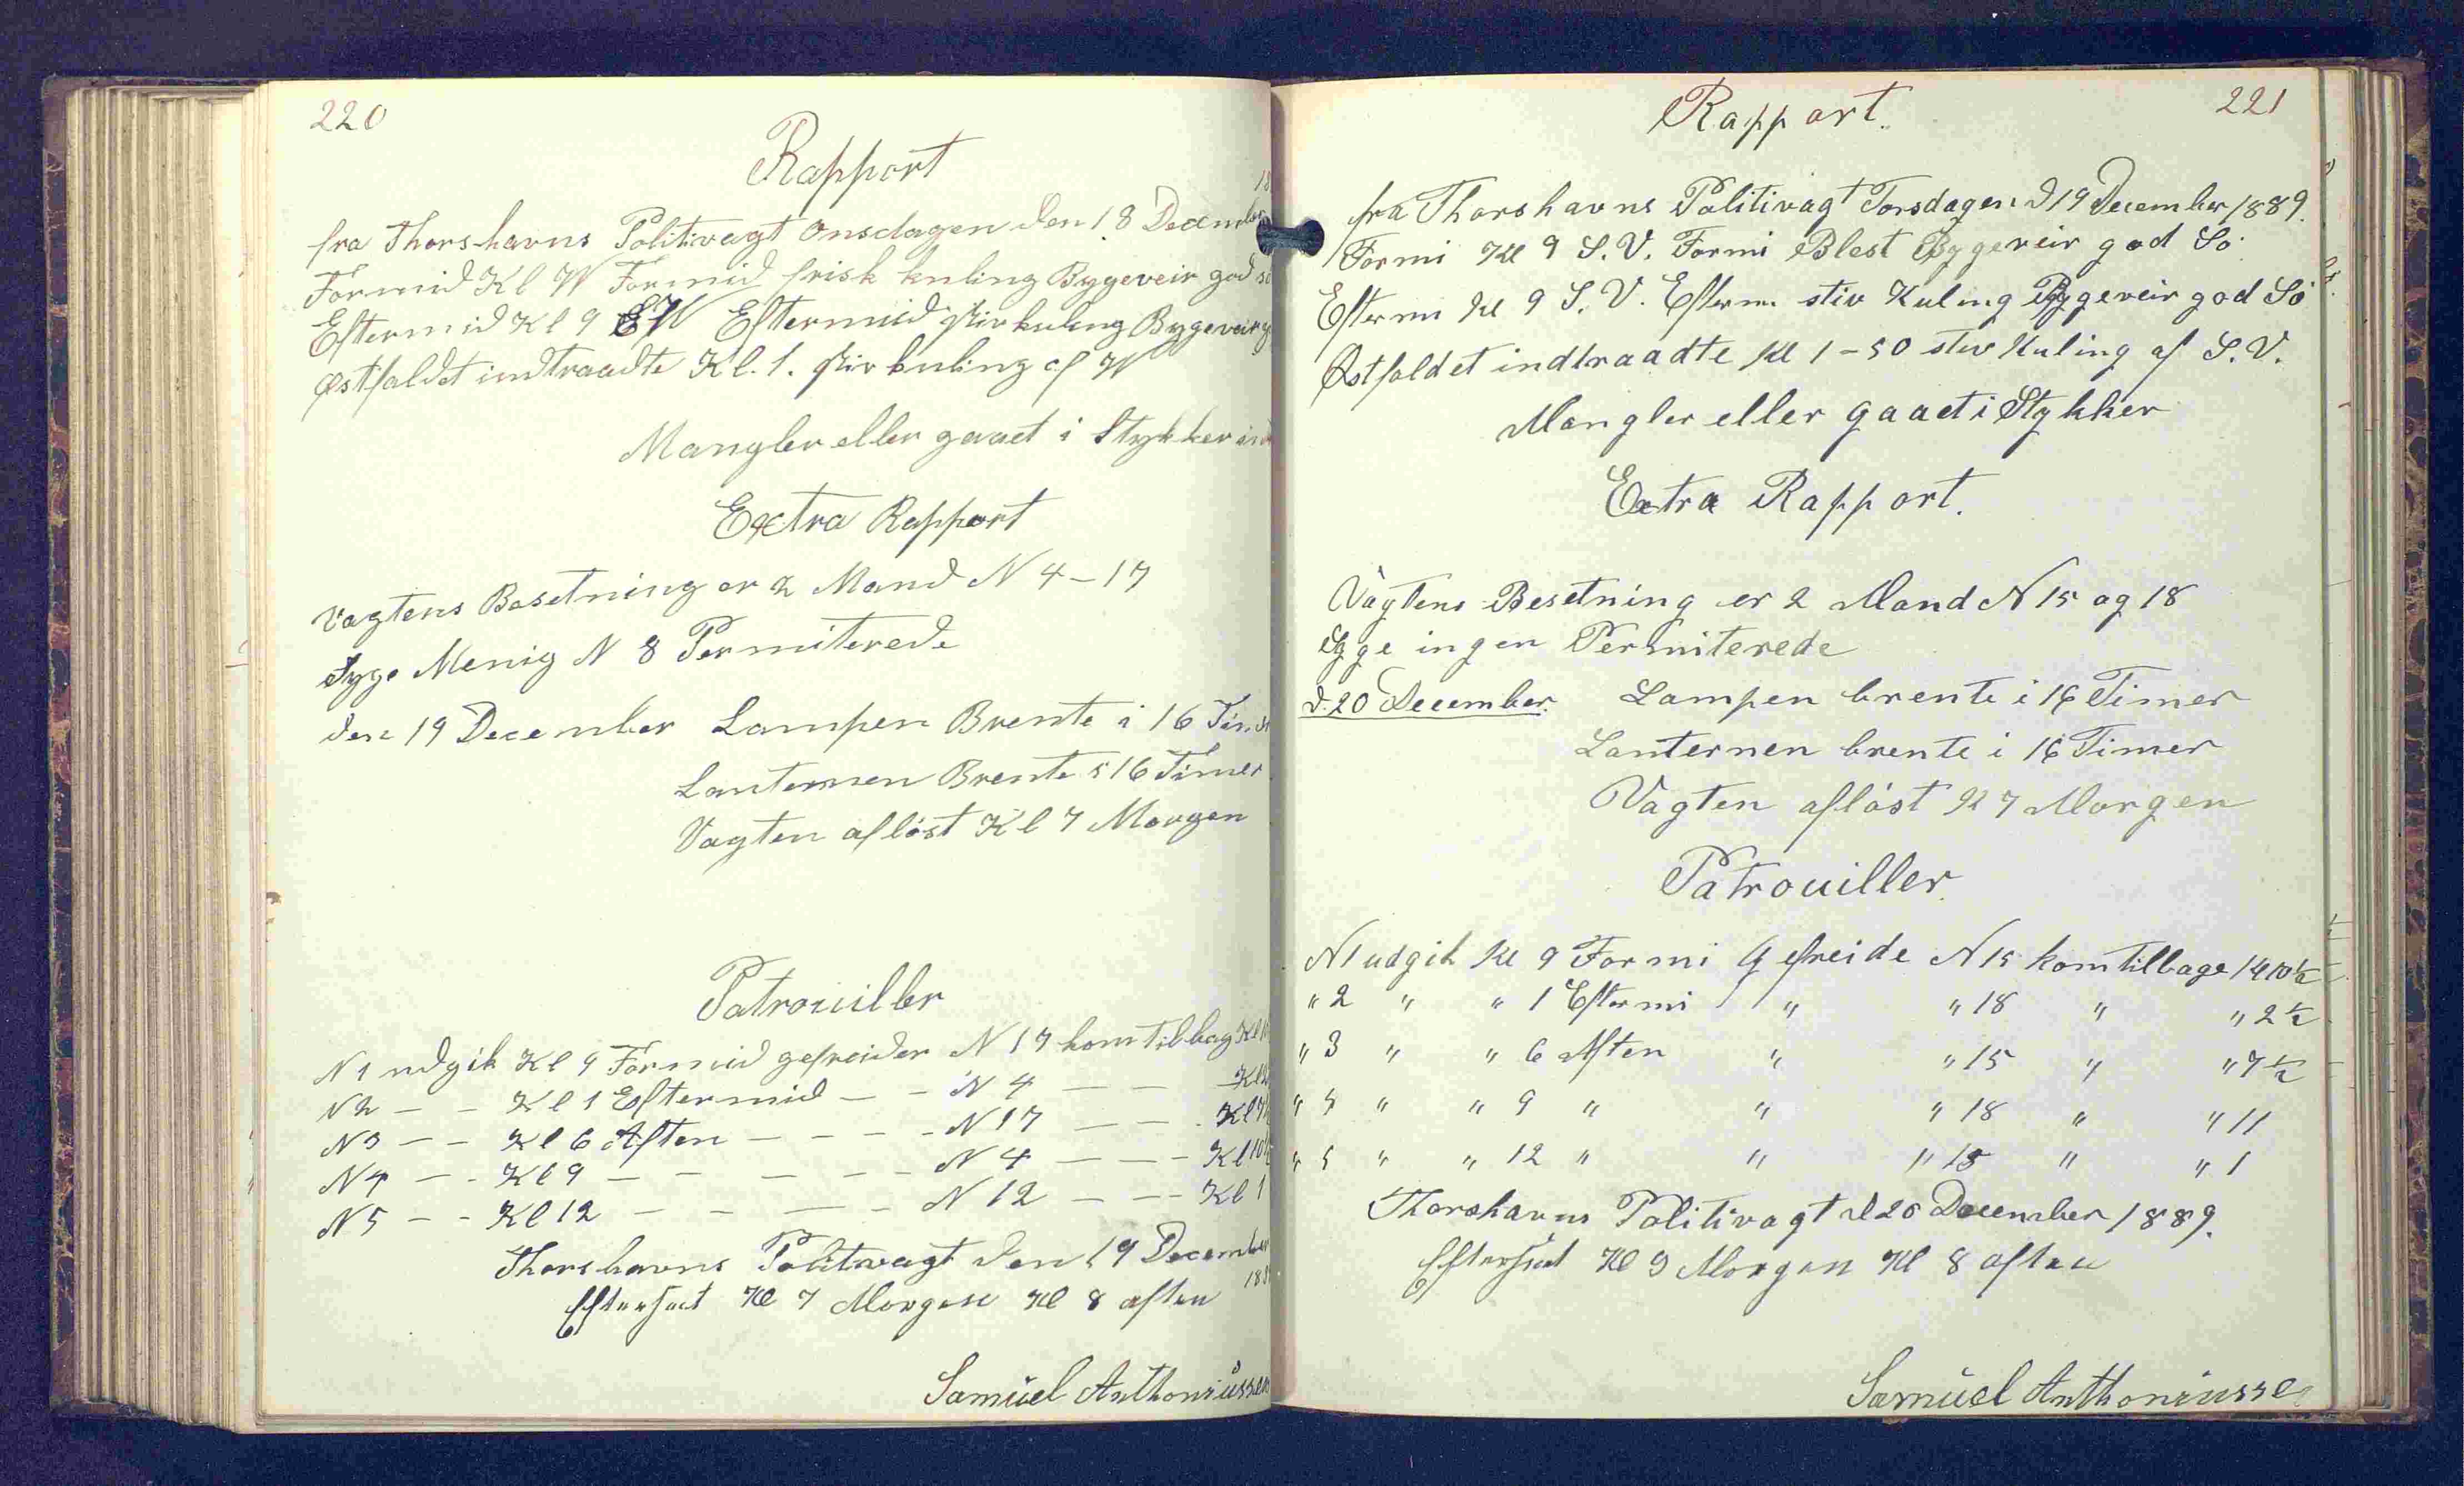 220
Rapport
fra Thorshavns Politivagt Onsdagen den 18 December
Formid Kl W Formid frisk kuling Bygeveir god
Eftermid Kl 9 W Eftermid stiv kuling Bygeveir
Østfaldet indtraadte Kl. 1. stiv kuling af W
Mangler eller gaaet i Stykker
Extra Rapport
Vagtens Besetning er 2 Mand N 4-17
Syge Menig N 8 Permiterede
den 19 December Lampen Brente i 16 Timer
Lanternen Brente i 16 Timer
Vagten afløst Kl 7 Morgen
Patrouiller
N 1 udgik Kl 9 Formid gefreider N 17 kom tilbag Kl
N 2 — — Kl 1 Eftermid — — N 4 — — Kl
N 3 — — Kl 6 Aften — — — — N 17 — — Kl 7½
N 4 — — Kl 9 — — — — — N 4 — — — Kl 10½
N 5 — — Kl 12 — — — — N 12 — — — Kl 1
Thorshavns Politivagt den 19 December
Efterseet Kl 7 Morgen Kl 8 aften
Samüel Anthoniüssen
221
Rapport.
fra Thorshavns Politivagt Torsdagen d 19 December 1889.
Formi Kl 9 S.V. Formi Blest Bygeveir god Sö
Eftermi Kl 9 S.V. Efterm stiv Kuling Bygeveir god Sö
Østfaldet indtraadte Kl 1-50 stiv Kuling af S.V.
Mangler eller gaaet i Stykker
Extra Rapport.
Vagtens Besetning er 2 Mand N 15 og 18
Syge ingen Permiterede
d. 20 December. Lampen brente i 16 Timer
Lanternen brente i 16 Timer
Vagten afløst Kl 7 Morgen
Patrouiller
N 1 udgik Kl 9 Formi Gefreide N 15 kom tilbage Kl 10½
" 2 " " 1 Eftermi " " 18 " " 2½
" 3 " " 6 Aften " " 15 " " 7½
" 4 " " 9 " " " 18 " " 11
" 5 " " 12 " " " 15 " " 1
Thorshavns Politivagt d 20 December 1889.
Efterseet Kl 9 Morgen Kl 8 aften
Samüel Anthoniussen